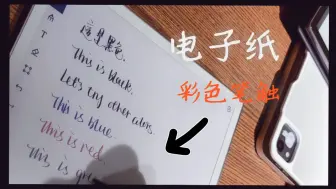 这是黑色.
This is black.
Let's try other colors.
This is blue.
This is red.
This is gre
电子纸
彩色笔触